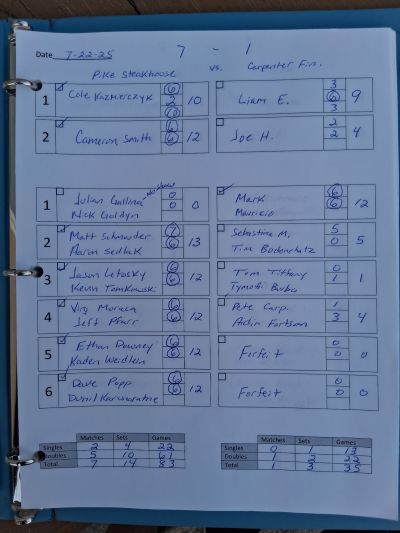 Date 7-22-25 7 - 1
Pike Steakhouse vs. Carpenter Fin.
1 Cole Kazmierczyk 6 2 10 10 Liam E. 3 6 3 9
2 Cameron Smith 6 6 12 Joe H. 2 2 4
1 Julian Gallina 0 0 0 Mark 6 6 12
Nick Goldyn Mauricio
2 Matt Schmouder 7 6 13 Sebastina M. 5 0 5
Aaron Sedlak Tim Bodenchatz
3 Jason Letosky 6 6 12 Tom Tiffany 0 1 1
Kevin Tomkowski Tymothi Burba
4 Virg Moraca 6 6 12 Pete Carp. 1 3 4
Jeff Pfarr Aidin Fortson
5 Ethan Downey 6 6 12 Forfeit 0 0 0
Kaden Weidlein
6 Dave Popp 6 6 12 Forfeit 0 0 0
Dunil Karunaratne
Matches Sets Games Matches Sets Games
Singles 2 4 22 Singles 0 1 13
Doubles 5 10 61 Doubles 1 2 22
Total 7 14 83 Total 1 3 35